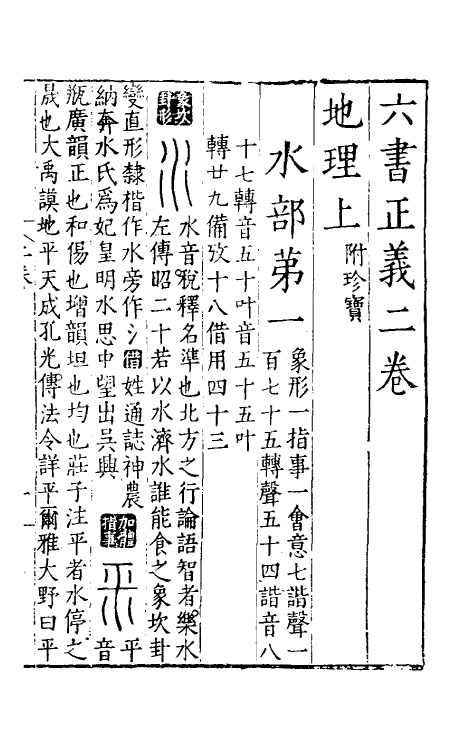 六書正義二卷
地理上附珍寶
水部第一象形一指事一會意七諧聲一
百七十五轉聲五十四諧音八
十七轉音五十叶音五十五叶
轉廿九備攷十八借用四十三
象坎卦形水音稅釋名準也北方之行論語智者樂水
左傳昭二十若以水濟水誰能食之象坎卦
變直形隸楷作水旁作氵借姓通誌神農
納奔水氏爲妃皇明水思中望出吳興加體指事平平
音
瓶廣韻正也和傷也增韻坦也均也莊子注平者水停之
晟也大禹謨地平天成孔光傳法令詳平爾雅大野曰平